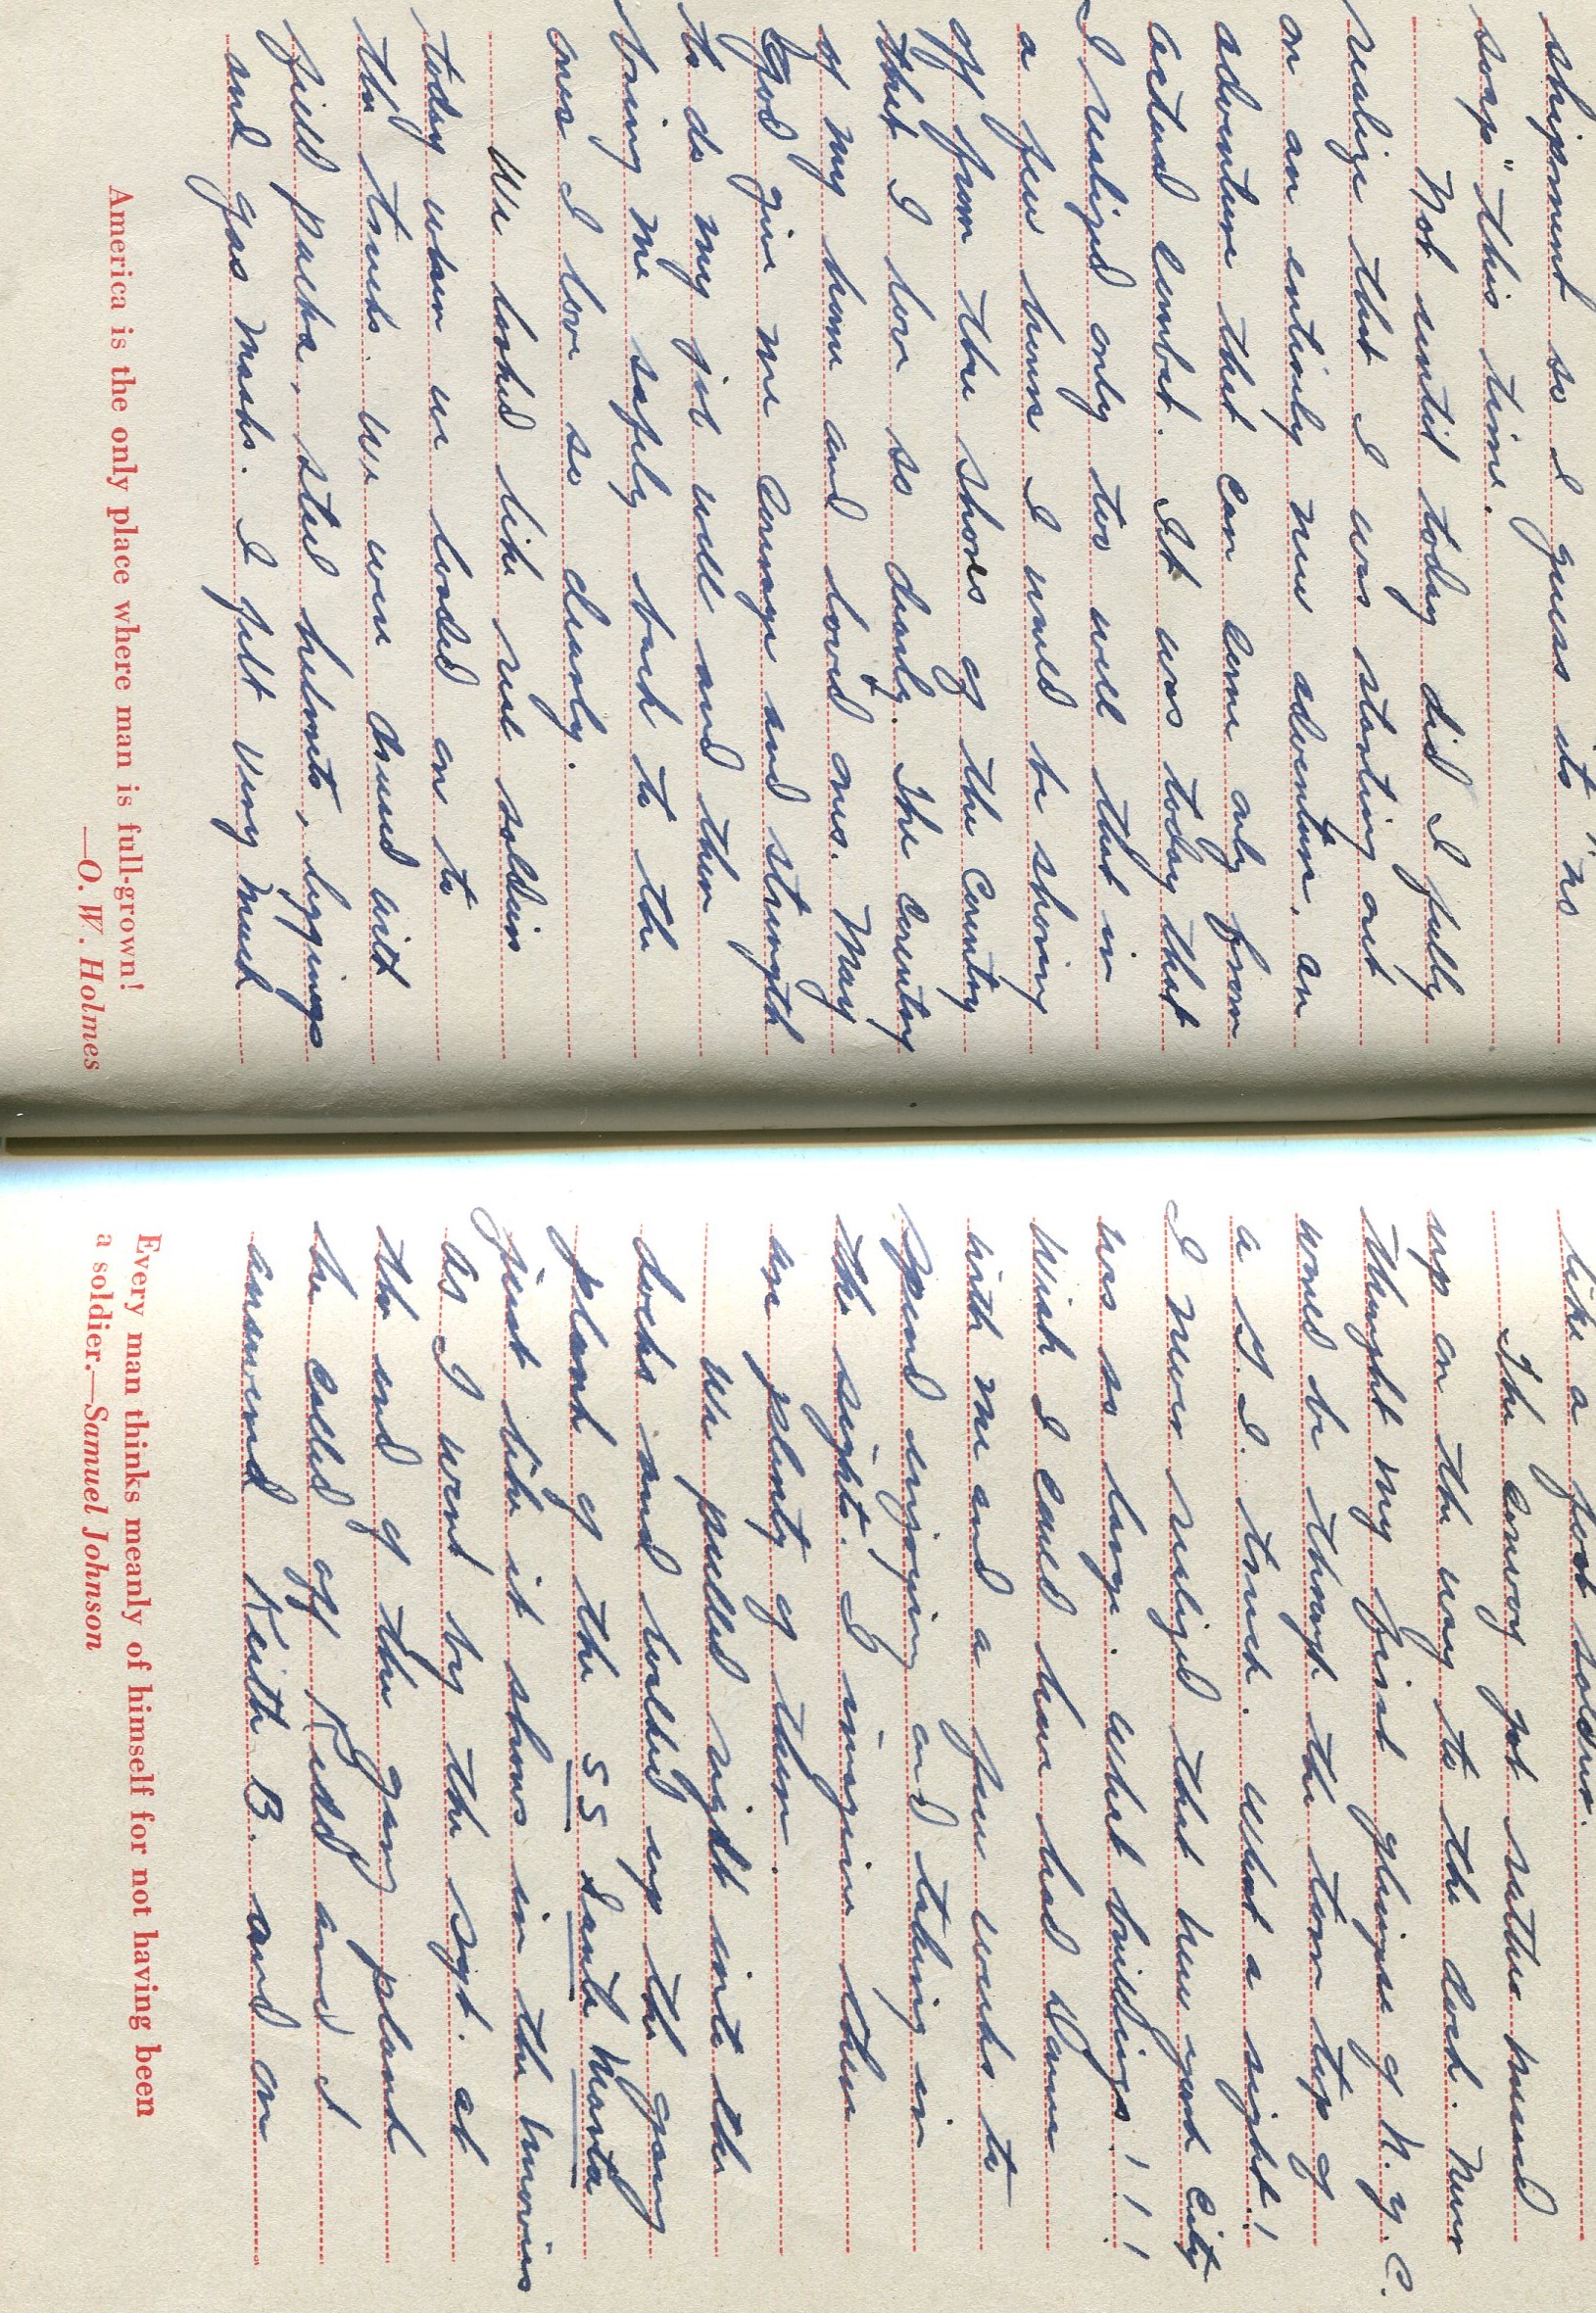 shipment so I guess its "no
soap" this time.
Not until today did I fully
realize that I was starting out
on an entirely new adventure, an
adventure that can come only from
actual combat. It was today that
I realized only too well that in
a few hours I would be shoving
off from the shores of the country
that I love so dearly. The country
of my home and loved ones. May
God give me courage and strength
to do my job well and then
bring me safely back to the
ones I love so dearly.
We looked like real soldiers
today when we loaded on to
the trucks. We were dressed with
field packs, steel helmets, leggings
and gas masks. I felt very much
America is the only place where man is full-grown!
—O. W. Holmes
like a foot soldier.
The convoy got rather mixed
up on the way to the dock. Never
thought my first glimpse of N.Y.C.
would be through the torn top of
a G.I. truck. What a sight!
I never realized that New York City
was so large. What buildings!!!
Wish I could have had Dawn
with me and a few weeks to
spend enjoying and taking in
the sights. I imagine there
are plenty of them.
We pulled right into the
docks and walked up the gang
plank of the SS Santa Marta
just like it shows in the movies
As I went by the sgt. at
the end of the gang plank
he called off Kidd and I
answered Keith B. and on
Every man thinks meanly of himself for not having been
a soldier.—Samuel Johnson